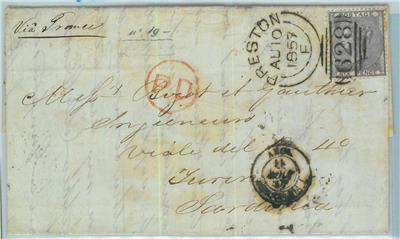 Via France
nº 19 —
PRESTON
AU 10
1857
F
628
POSTAGE
SIX PENCE
PD
Messrs Bizot et Gauthier
Ingenieurs
Viale del 4º
Turin
Sardinia